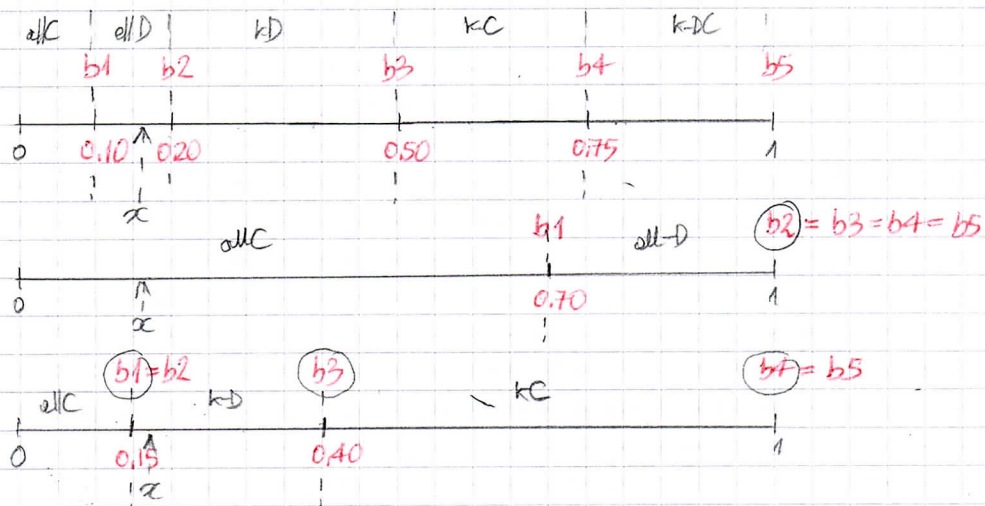 allC allD kD k-C k-DC
b1 b2 b3 b4 b5
0 0.10 0.20 0.50 0.75 1
x
allC b1 all-D b2 = b3 = b4 = b5
0 0.70 1
x
b1 = b2 b3 b4 = b5
allC k-D kC
0 0.15 0.40 1
x